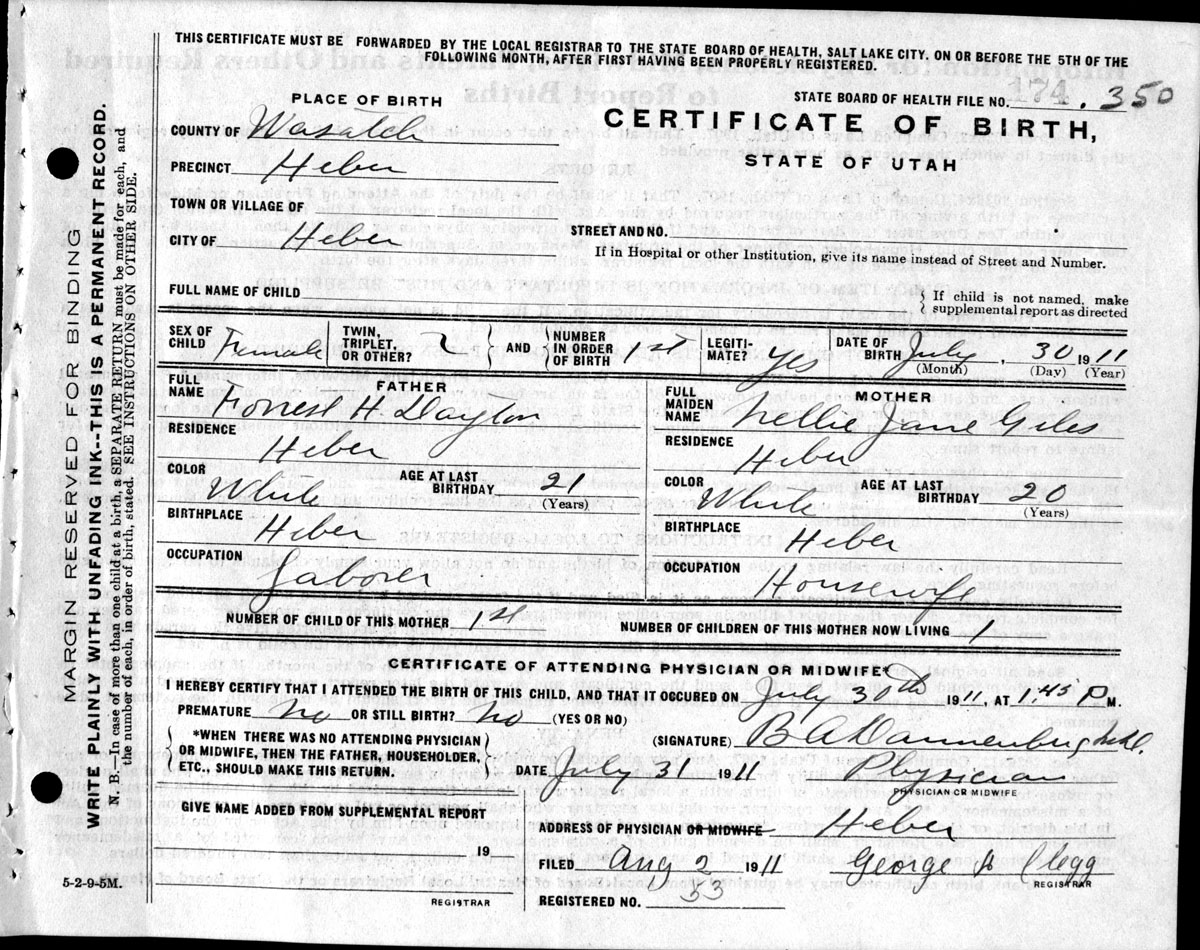 THIS CERTIFICATE MUST BE FORWARDED BY THE LOCAL REGISTRAR TO THE STATE BOARD OF HEALTH, SALT LAKE CITY, ON OR BEFORE THE 5TH OF THE
FOLLOWING MONTH, AFTER FIRST HAVING BEEN PROPERLY REGISTERED.
PLACE OF BIRTH
STATE BOARD OF HEALTH FILE NO. 174. 350
COUNTY OF Wasatch
CERTIFICATE OF BIRTH,
STATE OF UTAH
PRECINCT Heber
TOWN OR VILLAGE OF
CITY OF Heber
STREET AND NO.
If in Hospital or other Institution, give its name instead of Street and Number.
FULL NAME OF CHILD
{ If child is not named, make
supplemental report as directed
SEX OF CHILD Female TWIN, TRIPLET, OR OTHER? { AND } NUMBER IN ORDER OF BIRTH 1st LEGITI-MATE? yes DATE OF BIRTH July, 30 1911
(Month) (Day) (Year)
FATHER
FULL NAME Forrest H. Dayton
RESIDENCE Heber
COLOR White AGE AT LAST BIRTHDAY 21 (Years)
BIRTHPLACE Heber
OCCUPATION Laborer
MOTHER
FULL MAIDEN NAME Nellie Jane Giles
RESIDENCE Heber
COLOR White AGE AT LAST BIRTHDAY 20 (Years)
BIRTHPLACE Heber
OCCUPATION Housewife
NUMBER OF CHILD OF THIS MOTHER 1st NUMBER OF CHILDREN OF THIS MOTHER NOW LIVING 1
CERTIFICATE OF ATTENDING PHYSICIAN OR MIDWIFE*
I HEREBY CERTIFY THAT I ATTENDED THE BIRTH OF THIS CHILD, AND THAT IT OCCURED ON July 30th 1911, AT 1:45 P M.
PREMATURE no OR STILL BIRTH? no (YES OR NO)
*WHEN THERE WAS NO ATTENDING PHYSICIAN
OR MIDWIFE, THEN THE FATHER, HOUSEHOLDER,
ETC., SHOULD MAKE THIS RETURN.
(SIGNATURE) B A Dannenberg M.D.
DATE July 31 1911 Physician
PHYSICIAN OR MIDWIFE
GIVE NAME ADDED FROM SUPPLEMENTAL REPORT
19
REGISTRAR
ADDRESS OF PHYSICIAN OR MIDWIFE Heber
FILED Aug 2 1911 George H Clegg
REGISTRAR
REGISTERED NO. 53
5-2-9-5M.
MARGIN RESERVED FOR BINDING
WRITE PLAINLY WITH UNFADING INK--THIS IS A PERMANENT RECORD.
N. B.—In case of more than one child at a birth, a SEPARATE RETURN must be made for each, and
the number of each, in order of birth, stated. SEE INSTRUCTIONS ON OTHER SIDE.